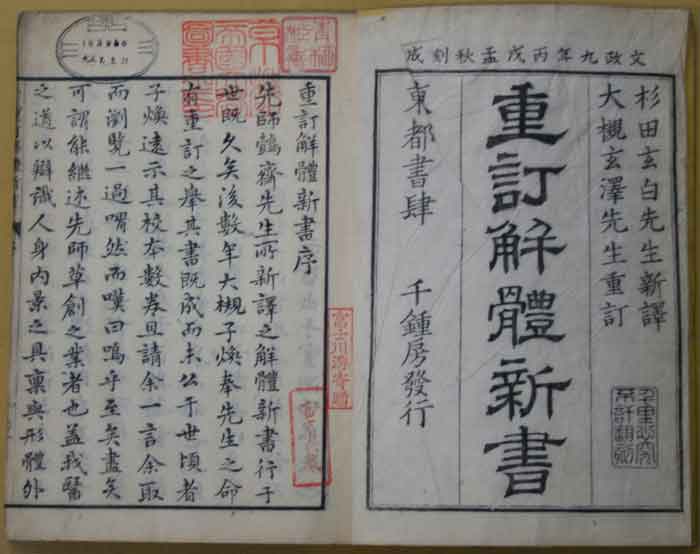 文政九年丙戌孟秋刻成
杉田玄白先生新譯
大槻玄澤先生重訂
重訂解體新書
東都書肆 千鍾房發行
千里必究
不許翻刻
重訂解體新書序
先師鷧齋先生所新譯之解體新書行于
世既久矣後數年大槻子煥奉先生之命
有重訂之舉其書既成而未公于世頃者
子煥遠示其校本數卷且請余一言余取
而瀏覽一過喟然而嘆曰嗚乎至矣盡矣
可謂能繼述先師草創之業者也蓋我醫
之道以辯識人身内景之具稟與形體外
富士川游寄贈